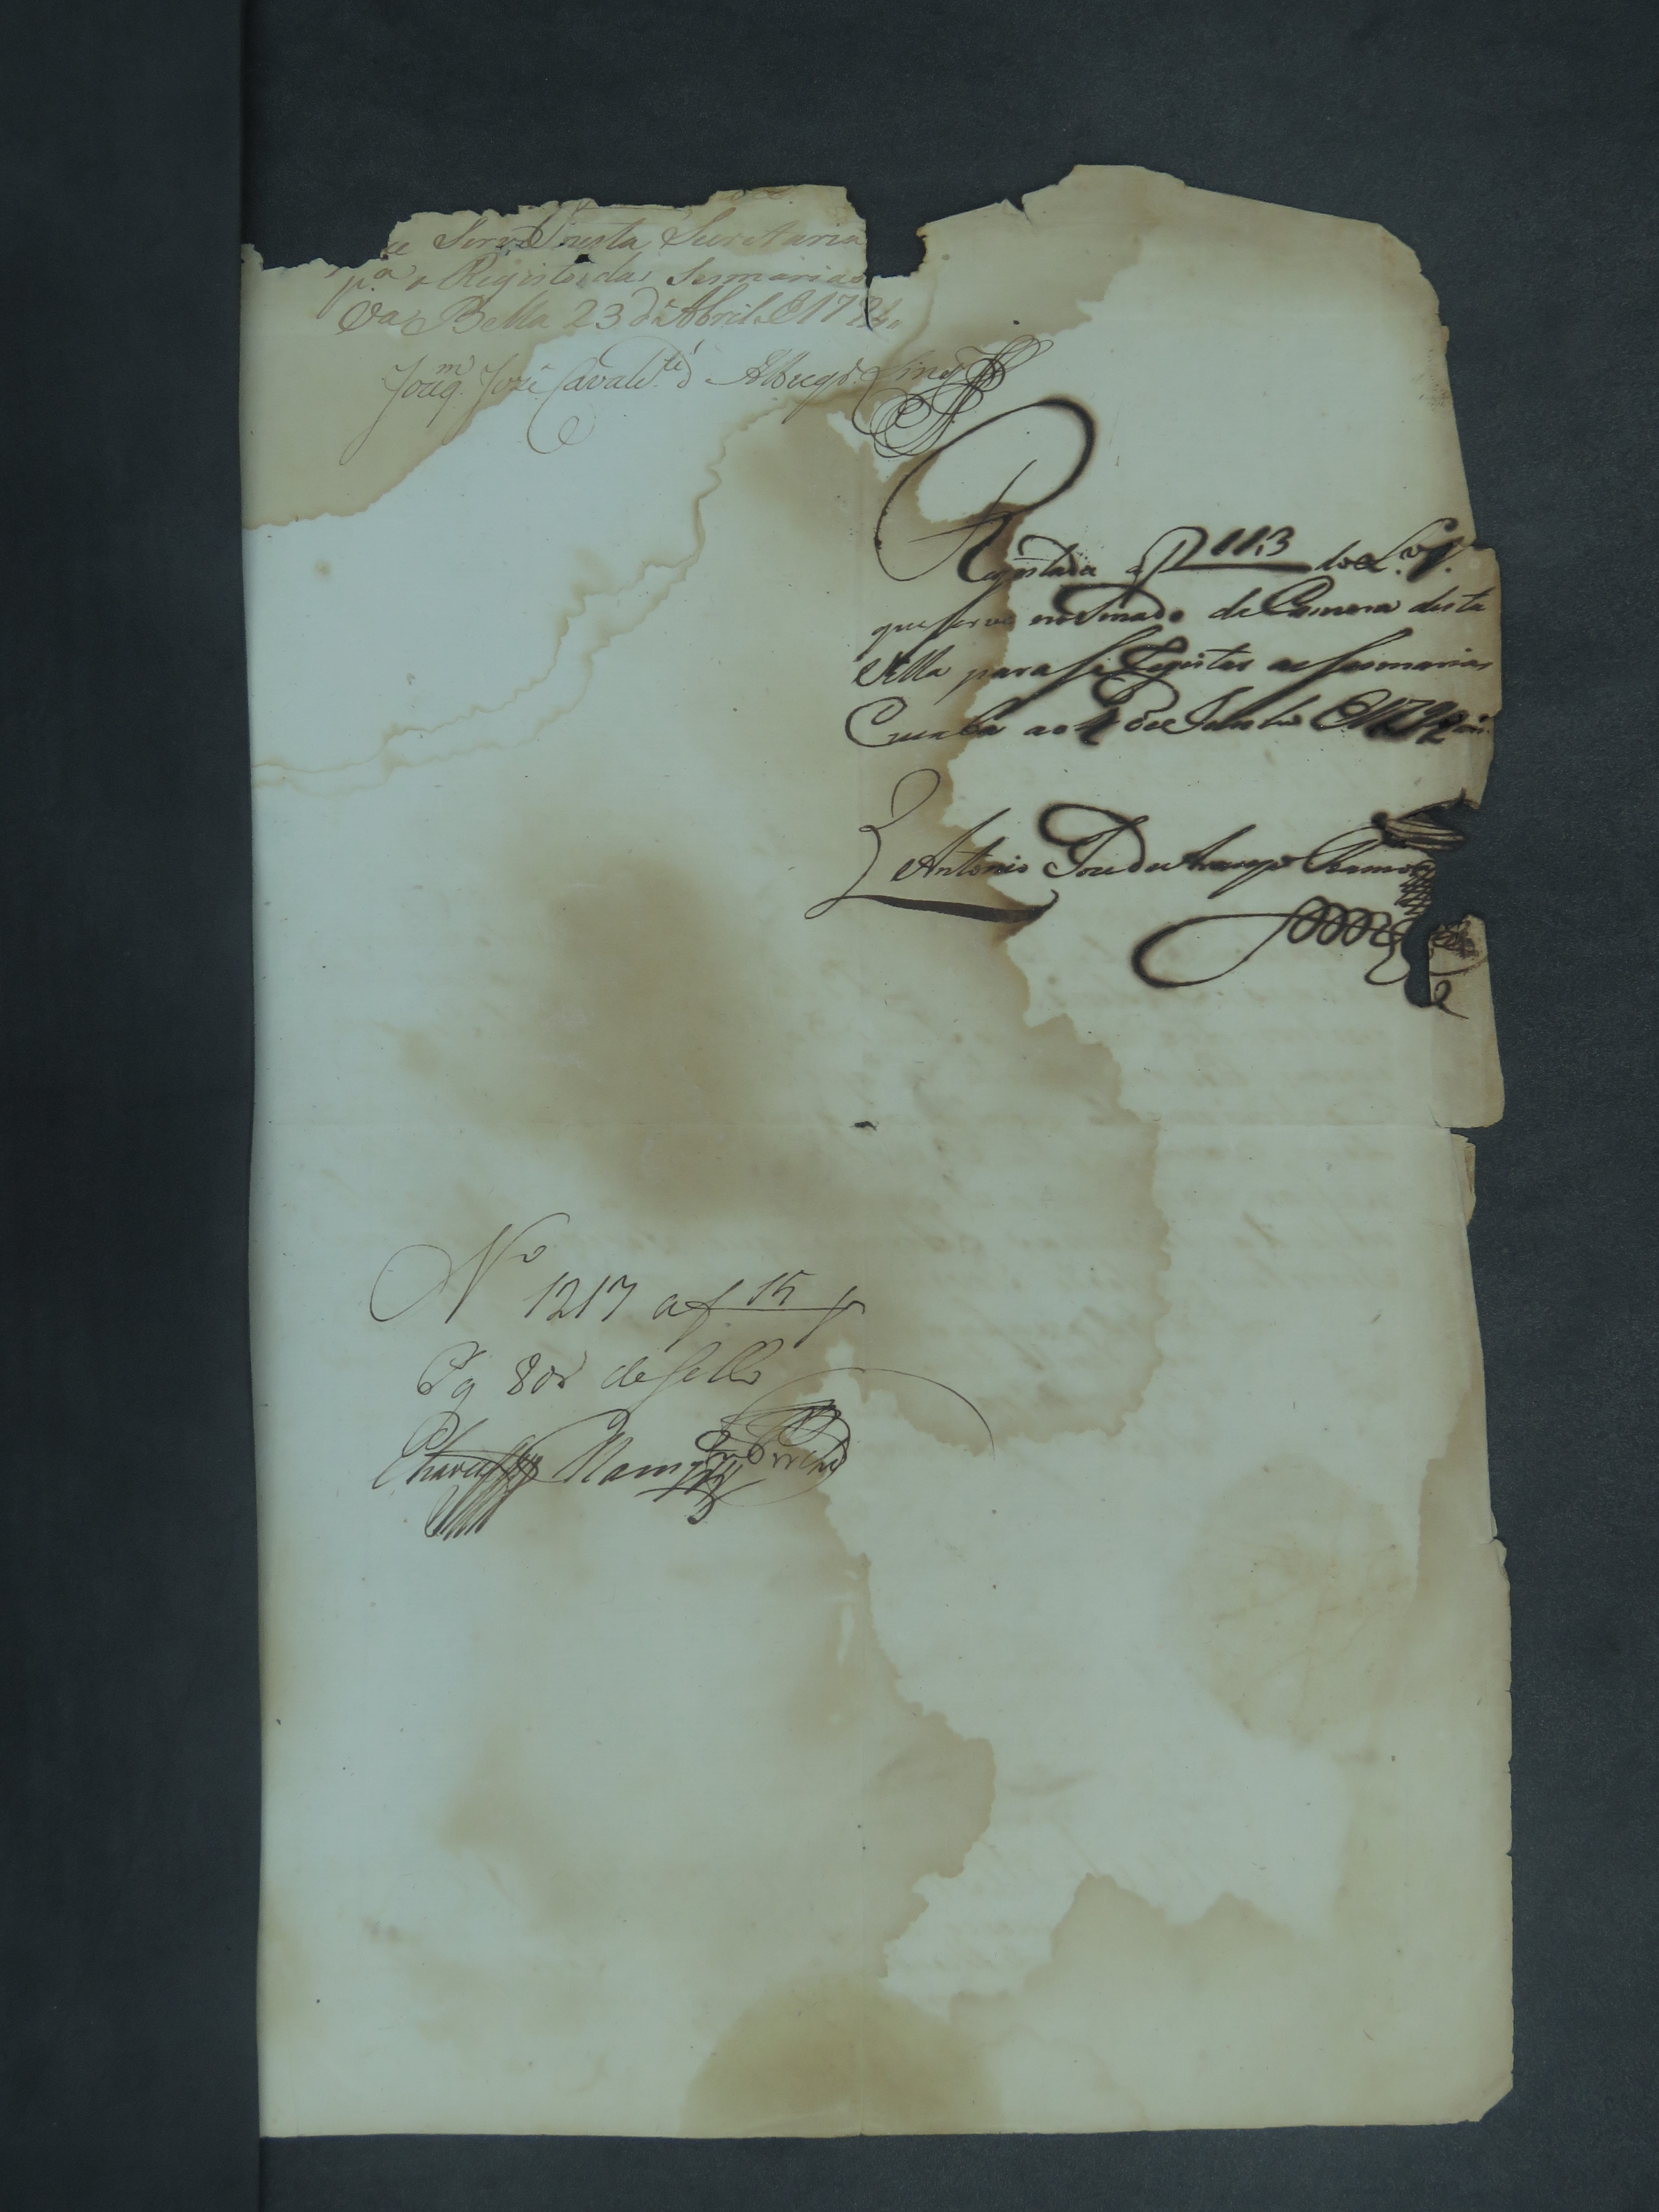 Serve nesta Secretaria
p.ª o Registo das Sesmarias
V.ª Bella 23 d'Abril d 179
Joaq.m José Cavalc.te d' Albuqr. Lins
Registada a f 113 do L.º
que serve no Senado da Camera desta
Villa para se Registar as sesmarias
Cuiabá ao de Junho de 179
Antonio Joze de Araujo Ramos
Nº 1217 a f 15
Pg 80r de sello
Chaves Ramos